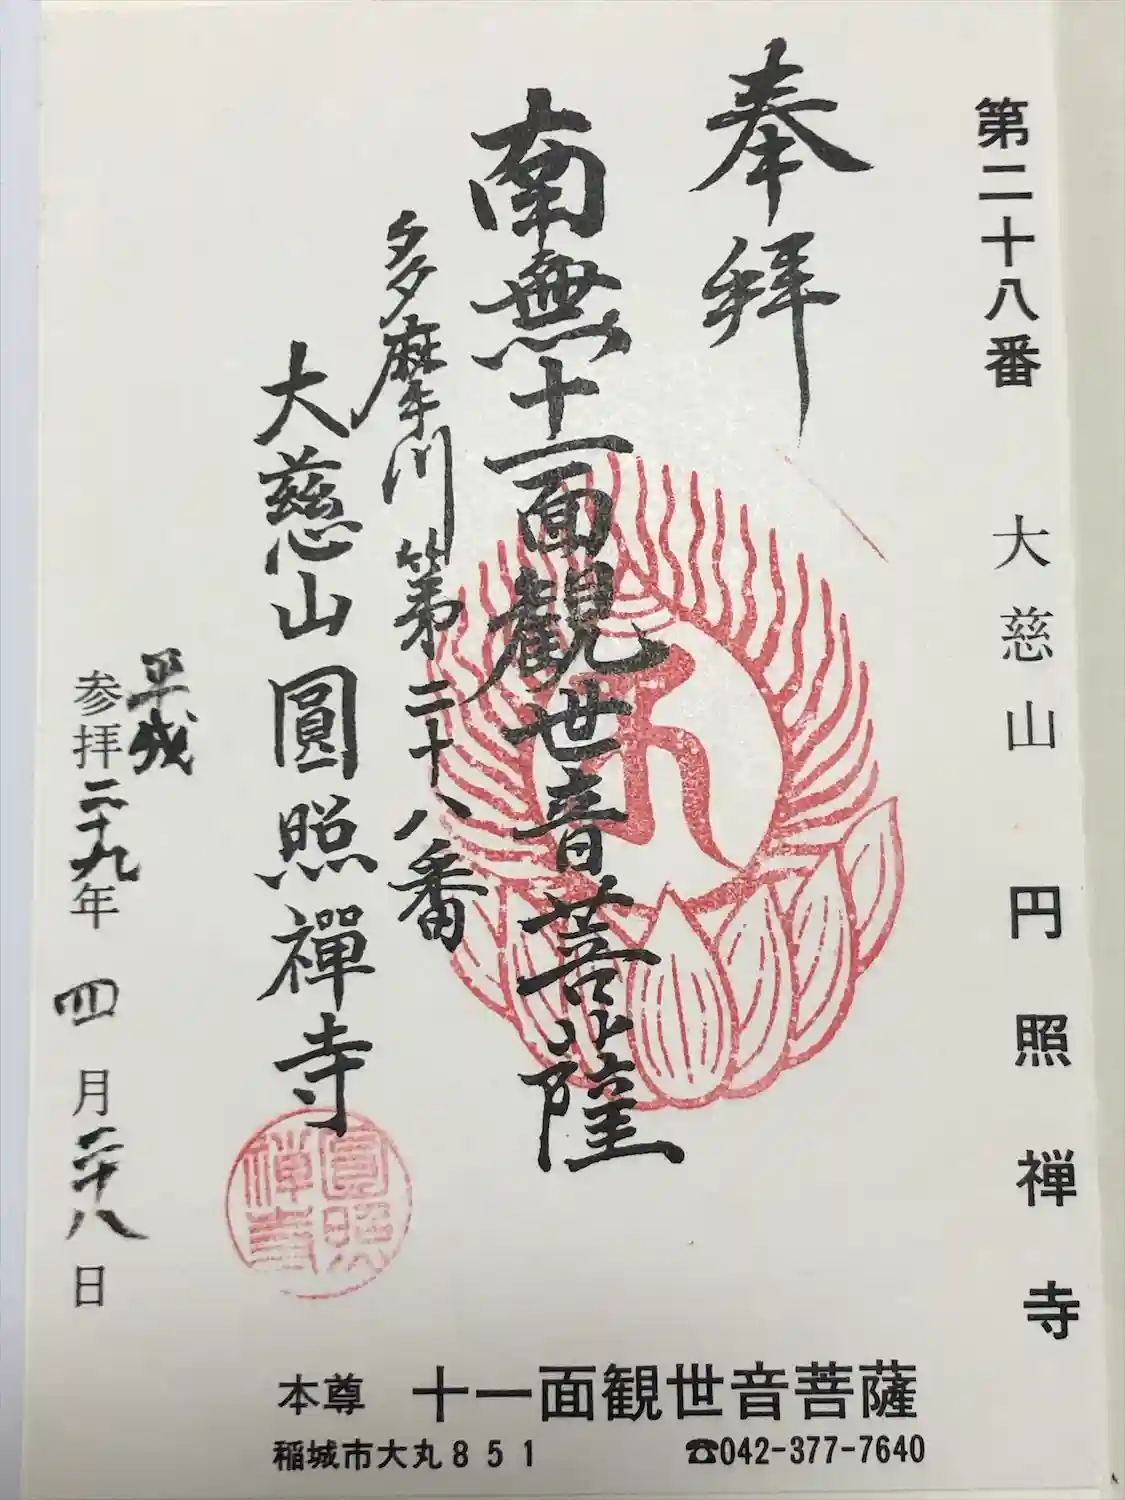 第二十八番 大慈山 円照禅寺
奉拝
南無十一面観世音菩薩
多摩川第二十八番
大慈山圓照禪寺
圓照
禅寺
平成
参拝二十九年四月二十八日
本尊 十一面観世音菩薩
稲城市大丸851 ☎042-377-7640